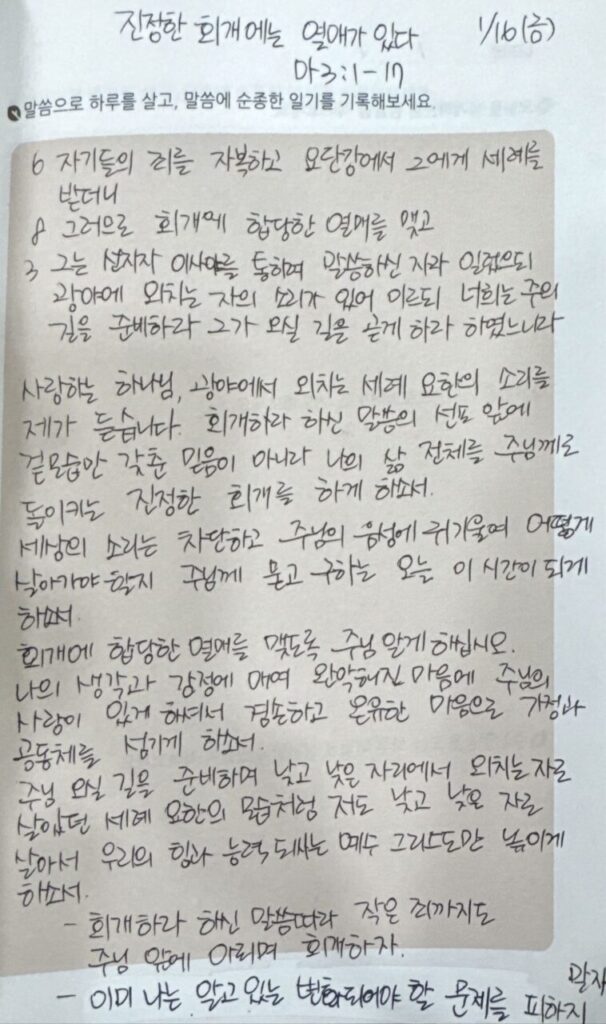 진정한 회개에는 열매가 있다 1/16(금)
마3:1-17
말씀으로 하루를 살고, 말씀에 순종한 일기를 기록해보세요.
6 자기들의 죄를 자복하고 요단강에서 그에게 세례를
받더니
8 그러므로 회개에 합당한 열매를 맺고
3 그는 선지자 이사야를 통하여 말씀하신 자라 일렀으되
광야에 외치는 자의 소리가 있어 이르되 너희는 주의
길을 준비하라 그가 오실 길을 곧게 하라 하였느니라
사랑하는 하나님, 광야에서 외치는 세례 요한의 소리를
제가 듣습니다. 회개하라 하신 말씀의 선포 앞에
겉모습만 갖춘 믿음이 아니라 나의 삶 전체를 주님께로
돌이키는 진정한 회개를 하게 하소서.
세상의 소리는 차단하고 주님의 음성에 귀기울여 어떻게
살아가야 할지 주님께 묻고 구하는 오늘 이 시간이 되게
하소서.
회개에 합당한 열매를 맺도록 주님 알게 해십시오.
나의 생각과 감정에 매여 완악해진 마음에 주님의
사랑이 있게 하셔서 겸손하고 온유한 마음으로 가정과
공동체를 섬기게 하소서.
주님 오실 길을 준비하며 낮고 낮은 자리에서 외치는 자로
살았던 세례 요한의 모습처럼 저도 낮고 낮은 자로
살아서 우리의 힘과 능력 되시는 예수 그리스도만 높이게
하소서.
- 회개하라 하신 말씀따라 작은 죄까지도
주님 앞에 아뢰며 회개하자.
- 이미 나는 알고 있는 변화되어야 할 문제를 피하지
말자